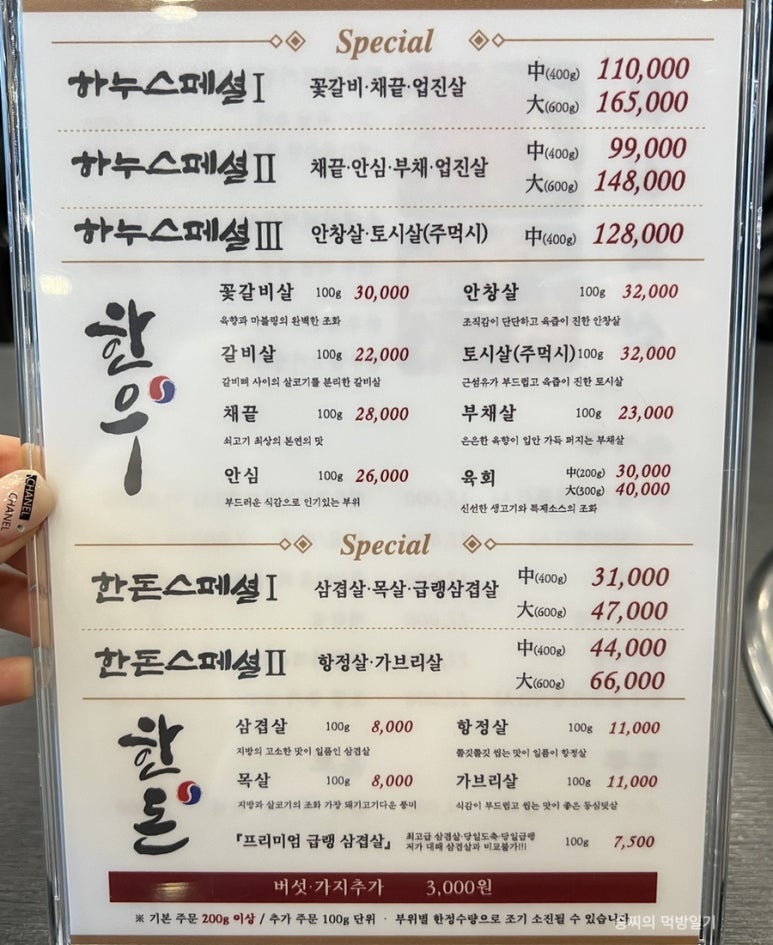 Special
하누스페셜Ⅰ 꽃갈비·채끝·업진살 中(400g) 110,000
大(600g) 165,000
하누스페셜Ⅱ 채끝·안심·부채·업진살 中(400g) 99,000
大(600g) 148,000
하누스페셜Ⅲ 안창살·토시살(주먹시) 中(400g) 128,000
한우
꽃갈비살 100g 30,000
육향과 마블링의 완벽한 조화
안창살 100g 32,000
조직감이 단단하고 육즙이 진한 안창살
갈비살 100g 22,000
갈비뼈 사이의 살코기를 분리한 갈비살
토시살(주먹시) 100g 32,000
근섬유가 부드럽고 육즙이 진한 토시살
채끝 100g 28,000
쇠고기 최상의 본연의 맛
부채살 100g 23,000
은은한 육향이 입안 가득 퍼지는 부채살
안심 100g 26,000
부드러운 식감으로 인기있는 부위
육회 中(200g) 30,000
大(300g) 40,000
신선한 생고기와 특제소스의 조화
Special
한돈스페셜Ⅰ 삼겹살·목살·급랭삼겹살 中(400g) 31,000
大(600g) 47,000
한돈스페셜Ⅱ 항정살·가브리살 中(400g) 44,000
大(600g) 66,000
한돈
삼겹살 100g 8,000
지방의 고소한 맛이 일품인 삼겹살
항정살 100g 11,000
쫄깃쫄깃 씹는 맛이 일품이 항정살
목살 100g 8,000
지방과 살코기의 조화 가장 돼기고기다운 풍미
가브리살 100g 11,000
식감이 부드럽고 씹는 맛이 좋은 등심덧살
『프리미엄 급랭 삼겹살』 최고급 삼겹살·당일도축·당일급랭
저가 대패 삼겹살과 비교불가!!! 100g 7,500
버섯·가지추가 3,000원
※ 기본 주문 200g 이상 / 추가 주문 100g 단위 · 부위별 한정수량으로 조기 소진될 수 있습니다
CHANEL
CHANEL
먹방일기